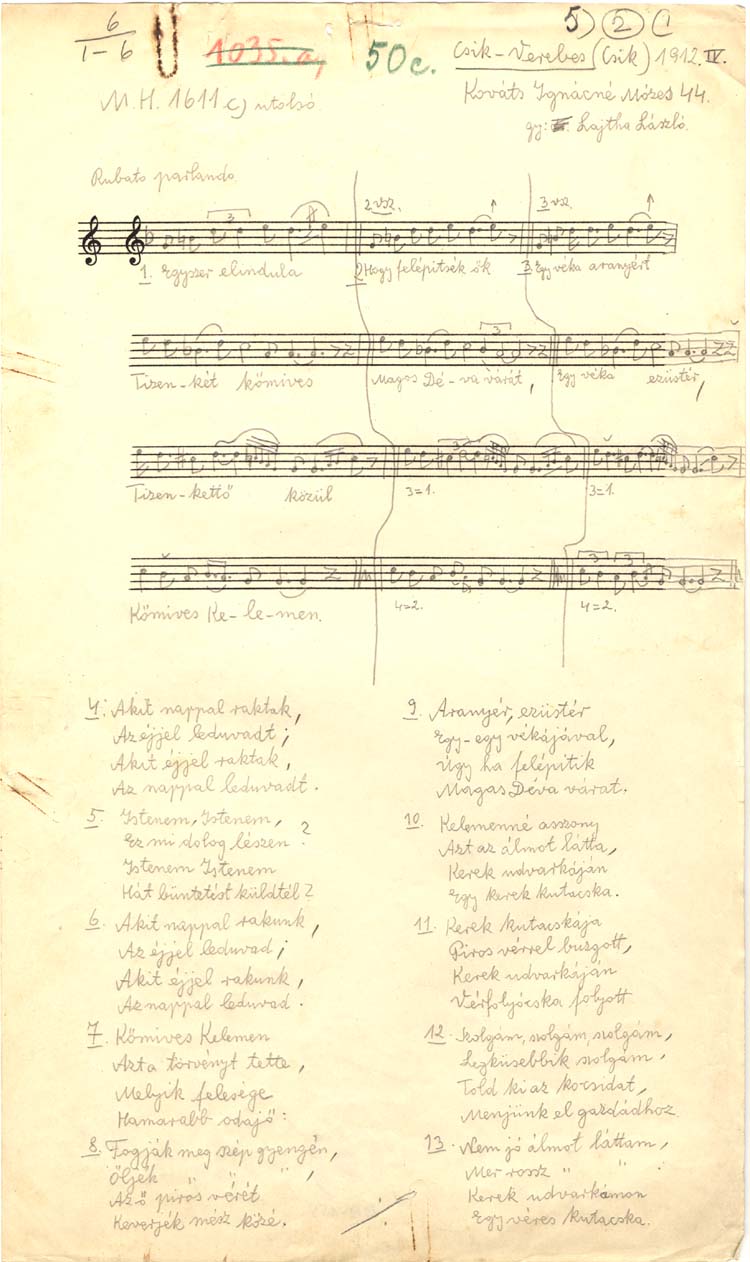 6
1-6
1035.a,
50c.
5) 2 (1
Csik-Verebes (Csik) 1912. IV.
M.H. 1611 c) utolsó
Kováts Ignácné Mózes 44.
gy: Lajtha László.
Rubato parlando.
2 vsz.
3 vsz.
1. Egyszer elindula
2 Hogy felépitsék ők
3. Egy véka aranyért
Tizen-két kömives
Magos Dé-va várát,
Egy véka ezüstér,
Tizen-kettő közül
3=1.
3=1.
Kömives Ke-le-men.
4=2.
4=2.
4. Akit nappal raktak,
Az éjjel leduvadt;
Akit éjjel raktak,
Az nappal leduvadt.
5. Istenem, Istenem,
Ez mi dolog lészen?
Istenem Istenem
Hát büntetést küldtél?
6. Akit nappal rakunk,
Az éjjel leduvad;
Akit éjjel rakunk,
Az nappal leduvad.
7. Kömives Kelemen
Azt a törvényt tette,
Melyik felesége
Hamarabb odajő:
8. Fogják meg szép gyengén,
Öljék " " ",
Az ő piros vérét
Keverjék mész közé.
9. Aranyér, ezüstér
Egy-egy vékájával,
Úgy ha felépitik
Magas Déva várat.
10. Kelemenné asszony
Azt az álmot látta,
Kerek udvarkáján
Egy kerek kutacska.
11. Kerek kutacskája
Piros vérrel buzgott,
Kerek udvarkáján
Vérfolyócska folyott
12. Szolgám, szolgám, szolgám,
Legküsebbik szolgám.
Told ki az kocsidat,
Menjünk el gazdádhoz
13. Nem jó álmot láttam,
Mer rossz " "
Kerek udvarkámon
Egy véres kutacska.